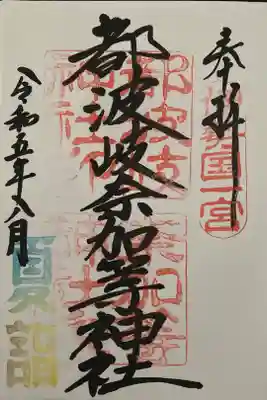 奉拝
伊勢国一宮
都波岐奈加等神社
令和五年八月
夏詣